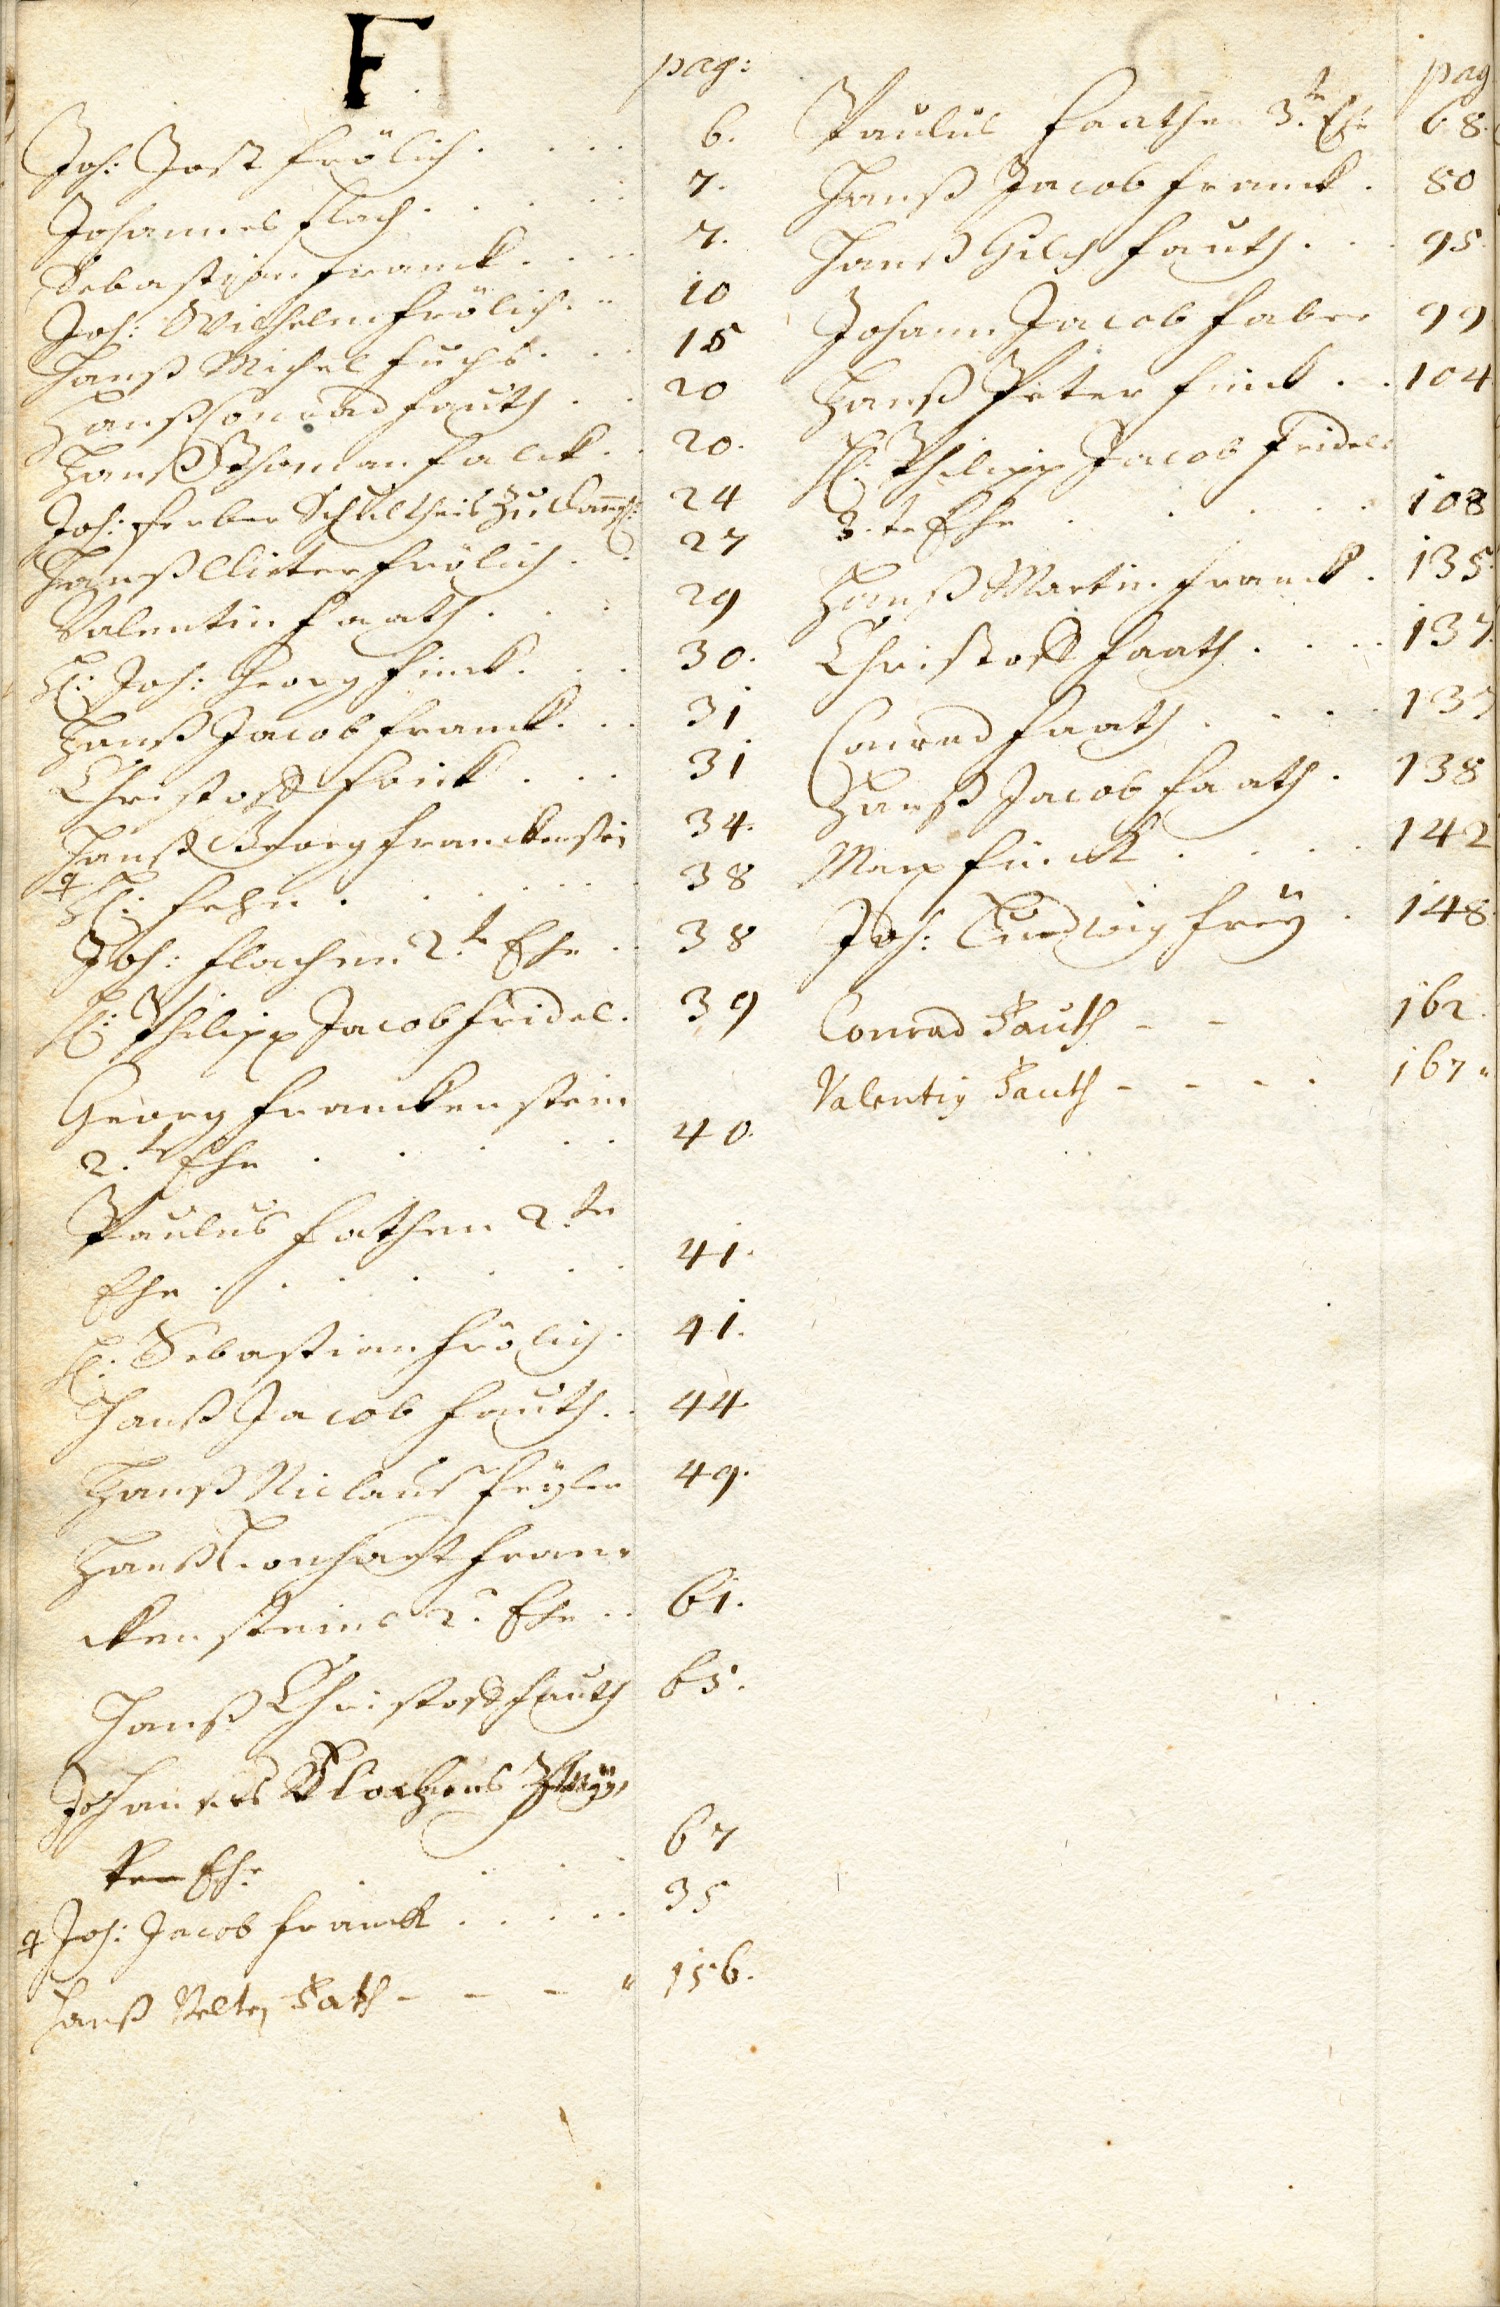 F
pag:
Joh: Jost Frölich. . . . . 6.
Johannes Flach. . . . . 7.
Sebastian Franck. . . . 7.
Joh: Wilhelm Frölich. . 10
Hanß Michel Fuchs. . . 15
Hanß Conrad Fauth. . . 20
Hanß Thoman Falck. . . 20.
Joh: Ferber Schultheis zu 24
Hanß Dieter Frölich. . . 27
Valentin Faath. . . : 29
H: Joh: Georg Finck. . . 30.
Hanß Jacob Franck. . . 31
Christoff Frick. . . . 31
Hanß Georg Franckenstein 34.
H: . . . . . . 38
Joh: Flachen 2.te Ehe . . 38
H: Philipp Jacob Fridel. 39
Georg Franckenstein
2.te Ehe . . . . . 40.
Paulus Fathen 2.te
Ehe . . . . . . 41.
H: Sebastian Frölich. 41.
Hanß Jacob Fauth. . 44.
Hanß Niclaus 49.
Hanß Leonhart Fran-
ckensteins 2. Ehe . . 61.
Hanß Christoff Fauth 65.
Johannes Flachens
Ehe . . . . 67
Joh: Jacob Franck . . . . . 35
Hanß Velten Fath - - - " 156.
pag
Paulus Faathen 3.te Ehe 68.
Hanß Jacob Franck. 80
Hanß Gilch Fauth. . . 95.
Johann Jacob Faber 99
Hanß Peter Finck . . 104
H: Philipp Jacob Fridels
3.te Ehe . . . . . 108
Hanß Martin Franck. 135.
Christoff Faath. . . . 137.
Conrad Faath . . . . 137
Hanß Jacob Faath. 138
Marx Finck . . . . 142
Joh: Ludwig Freÿ. 148.
Conrad Fauth - - 162.
Valentin Fauth - - - . 167"